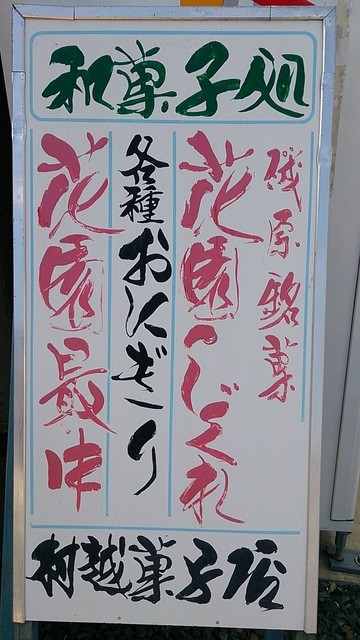 和菓子処
磯原銘菓
花園しぐれ
各種おにぎり
花園最中
村越菓子店